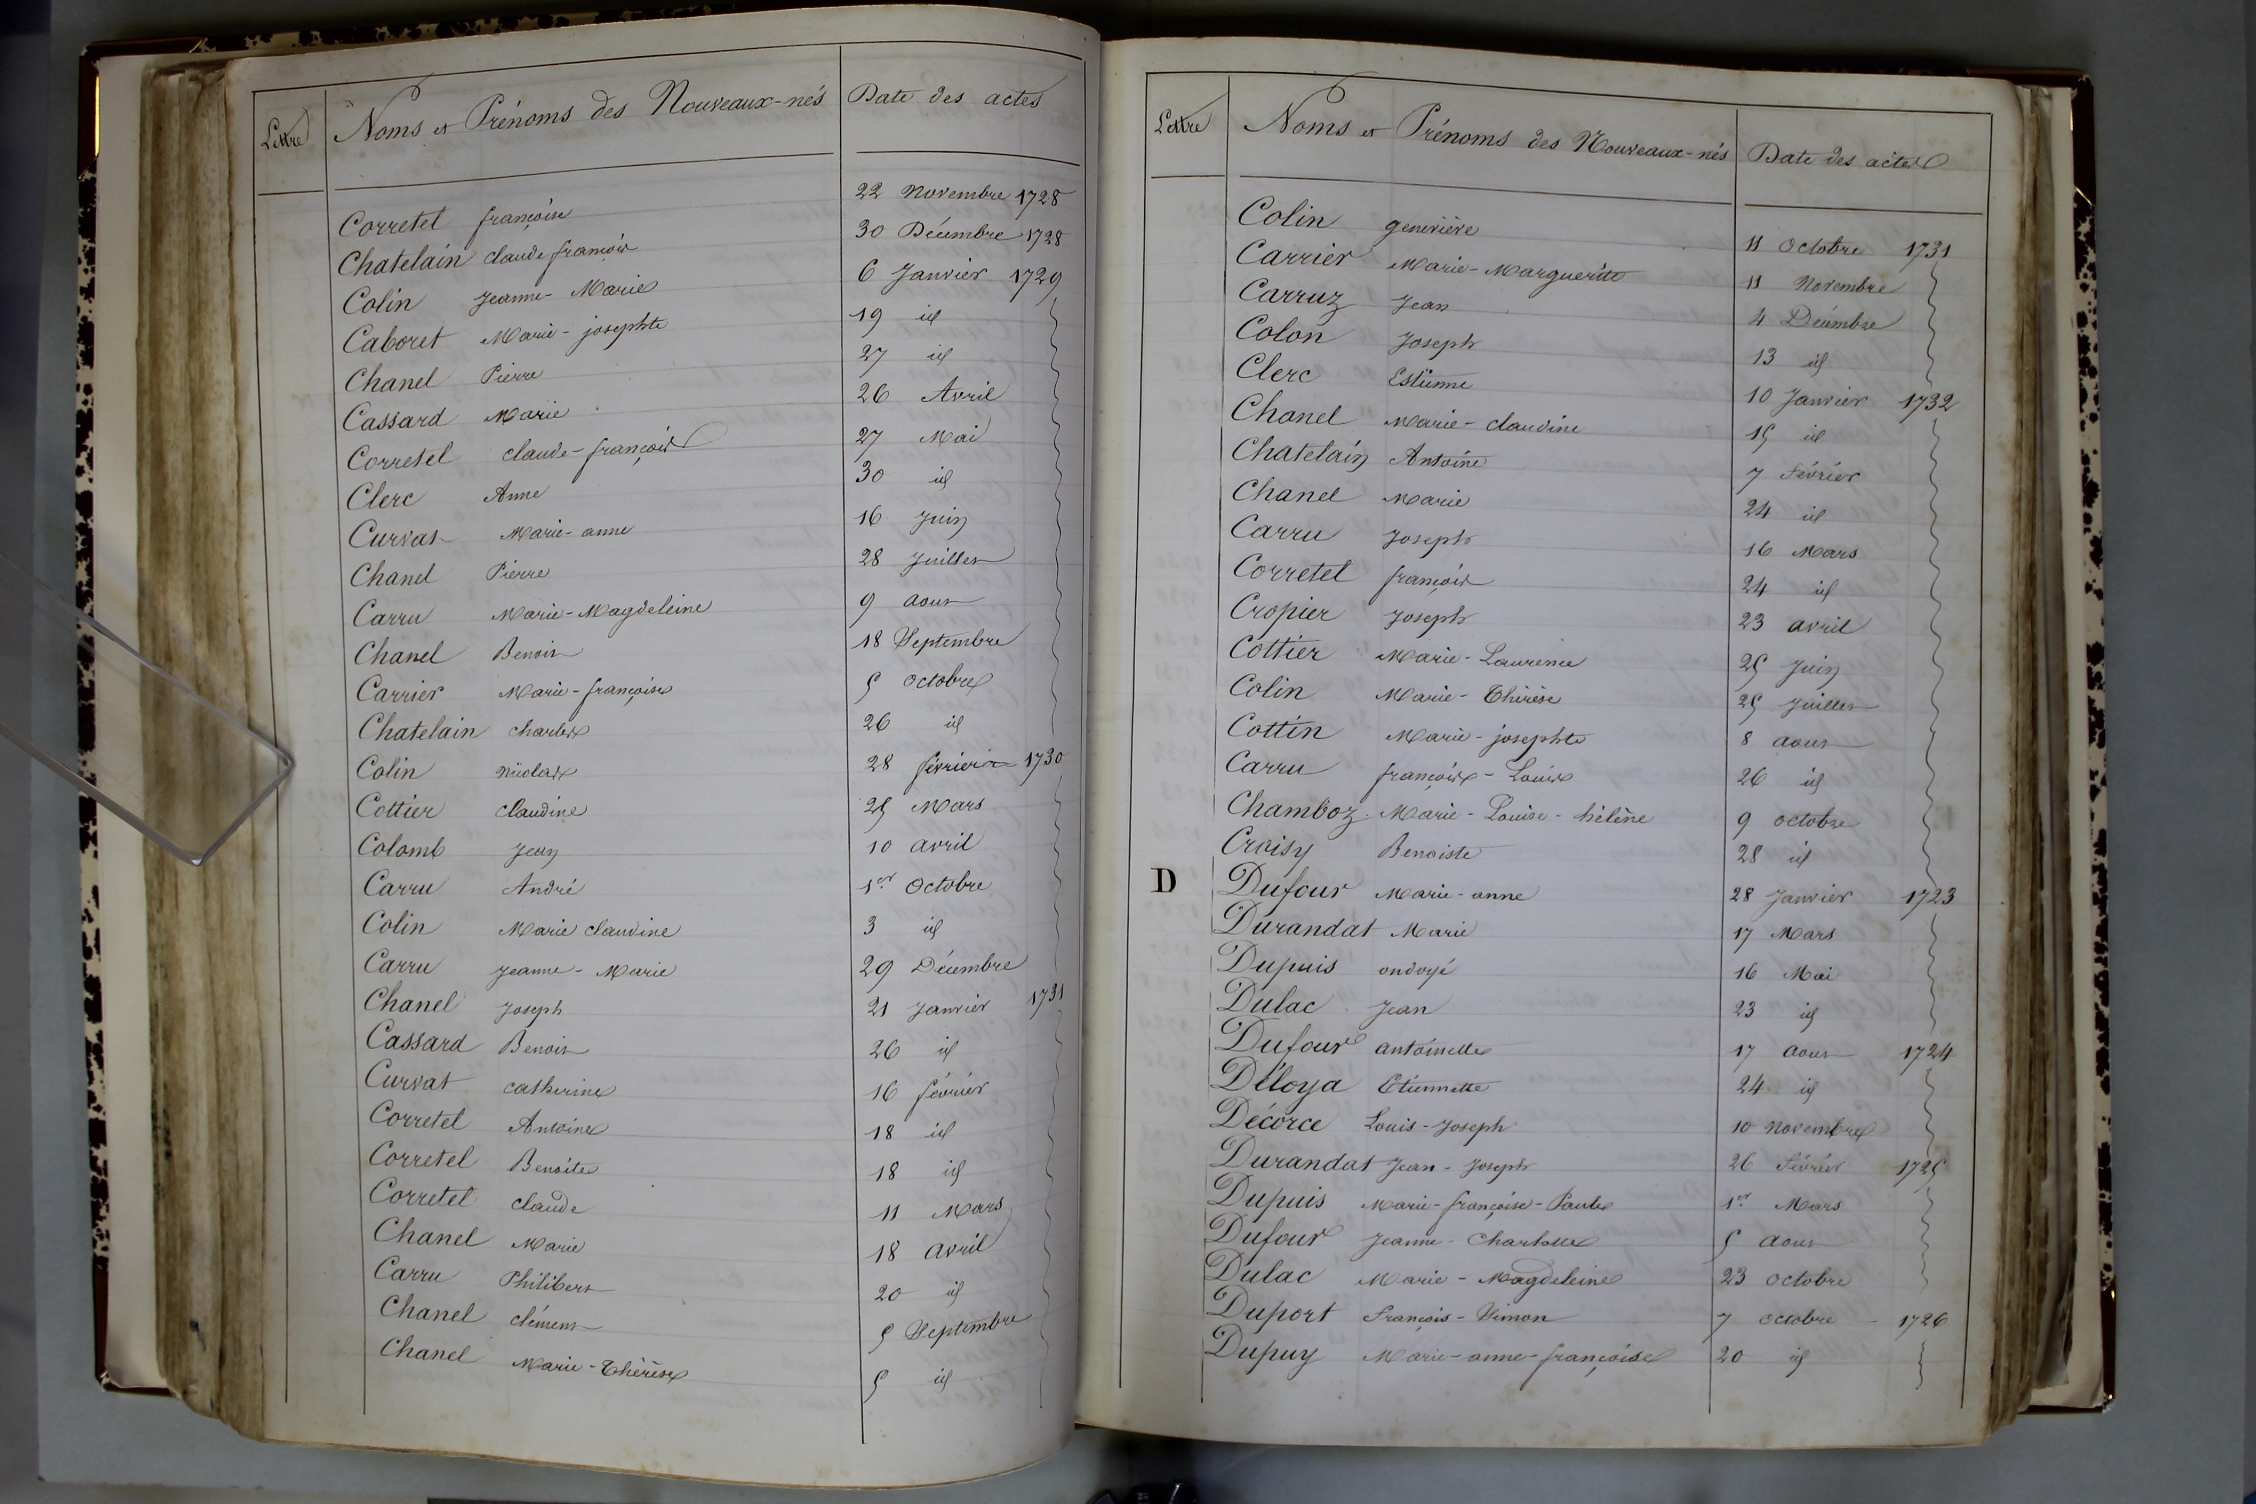 Lettre Noms et Prénoms des Nouveaux-nés Date des actes
Corretel françoise 22 Novembre 1728
Chatelain claude françois 30 Décembre 1728
Colin Jeanne-Marie 6 Janvier 1729
Caboret Marie-josephte 19 id
Chanel Pierre 27 id
Cassard Marie 26 Avril
Corretel claude-françois 27 Mai
Clerc Anne 30 id
Curvat Marie-anne 16 Juin
Chanel Pierre 28 Juillet
Carru Marie-Magdeleine 9 aout
Chanel Benoit 18 Septembre
Carrier Marie-françoise 5 octobre
Chatelain charles 26 id
Colin Nicolas 28 février 1730
Cottier claudine 25 Mars
Colomb Jean 10 avril
Carru André 1er Octobre
Colin Marie claudine 3 id
Carru Jeanne-Marie 29 Décembre
Chanel Joseph 21 Janvier 1731
Cassard Benoit 26 id
Curvat catherine 16 février
Corretel Antoine 18 id
Corretel Benoite 18 id
Corretel claude 11 Mars
Chanel Marie 18 avril
Carru Philibert 20 id
Chanel clément 5 Septembre
Chanel Marie-Thérèse 5 id
Lettre Noms et Prénoms des Nouveaux-nés Date des actes
Colin geneviève 11 Octobre 1731
Carrier Marie-Margueritte 11 Novembre
Carruz Jean 4 Décembre
Colon Joseph 13 id
Clerc Estienne 10 Janvier 1732
Chanel Marie-claudine 15 id
Chatelain Antoine 7 Février
Chanel Marie 24 id
Carru Joseph 16 Mars
Corretel françois 24 id
Cropier Joseph 23 avril
Cottier Marie-Laurence 25 Juin
Colin Marie-Thérèse 25 Juillet
Cottin Marie-josephte 8 aout
Carru françois-Louis 26 id
Chamboz Marie-Louise-hélène 9 octobre
Croisy Benoiste 28 id
D Dufour Marie-anne 28 Janvier 1723
Durandat Marie 17 Mars
Dupuis ondoyé 16 Mai
Dulac Jean 23 id
Dufour antoinette 17 aout 1724
Déloya Etiennette 24 id
Décorce Louis-Joseph 10 Novembre
Durandat Jean-Joseph 26 Février 1725
Dupuis Marie-françoise-Paule 1er Mars
Dufour Jeanne-Charlotte 5 aout
Dulac Marie-Magdeleine 23 octobre
Duport François-Simon 7 octobre 1726
Dupuy Marie-anne-françoise 20 id